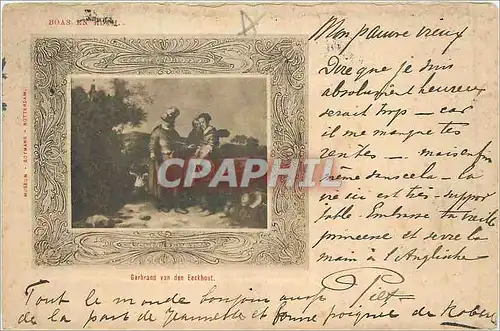 BOAS EN RUTH.
MUSEUM - BOYMANS - ROTTERDAM.
CPARAMA.COM
Gerbrand van den Eeckhout.
Mon pauvre vieux
Dire que je suis
absolument heureux
serait trop — car
il me manque tes
rentes — mais enfin
même sans cela — la
vie ici est très suppor
table. Embrasse ta vieille
princesse et serre la
main à l'Anglaise
Piet
Tout le monde bonjour aussi
de la part de Jeannette et bonne poignée de Robert